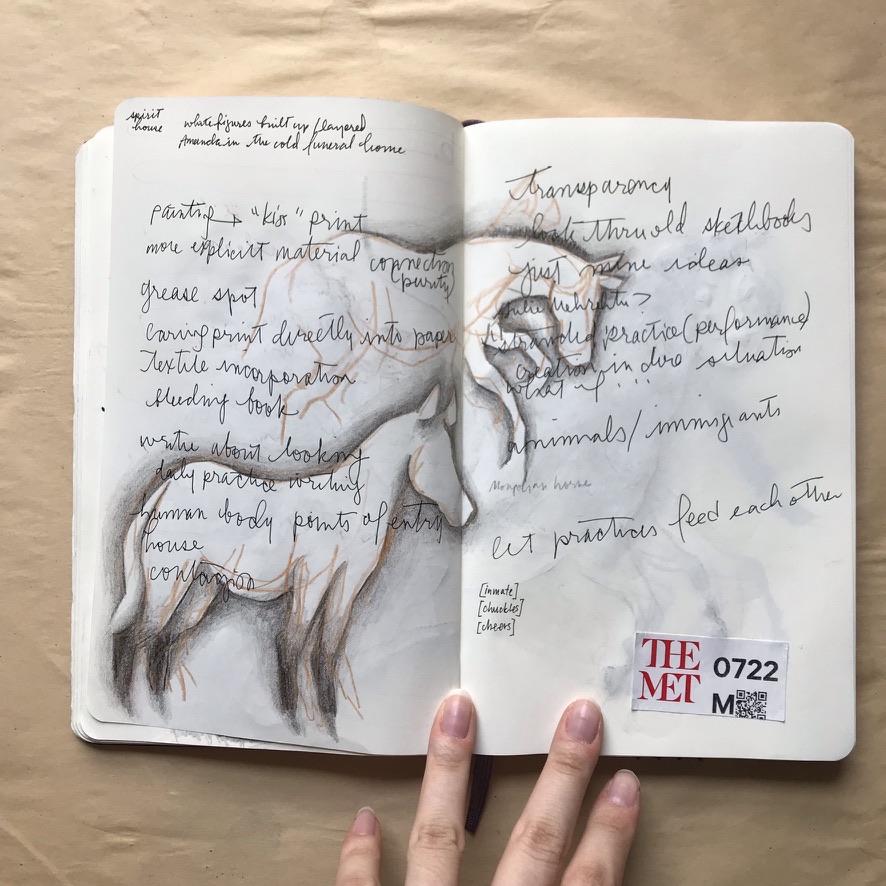 spirit
house
white figures built up/layered
Amanda in the cold funeral home
painting → "kiss" print
more explicit material
connection
(purity)
grease spot
carving print directly into paper
textile incorporation
bleeding book
write about looking
daily practice writing
human body points of entry
house
contagion
transparency
look thru old sketchbooks
just mine ideas
julie mehretu?
stranded practice (performance)
creation in dire situation
what if...
animals/immigrants
Mongolian horse
let practices feed each other
[inmate]
[chuckles]
[cheers]
THE
MET
0722
M